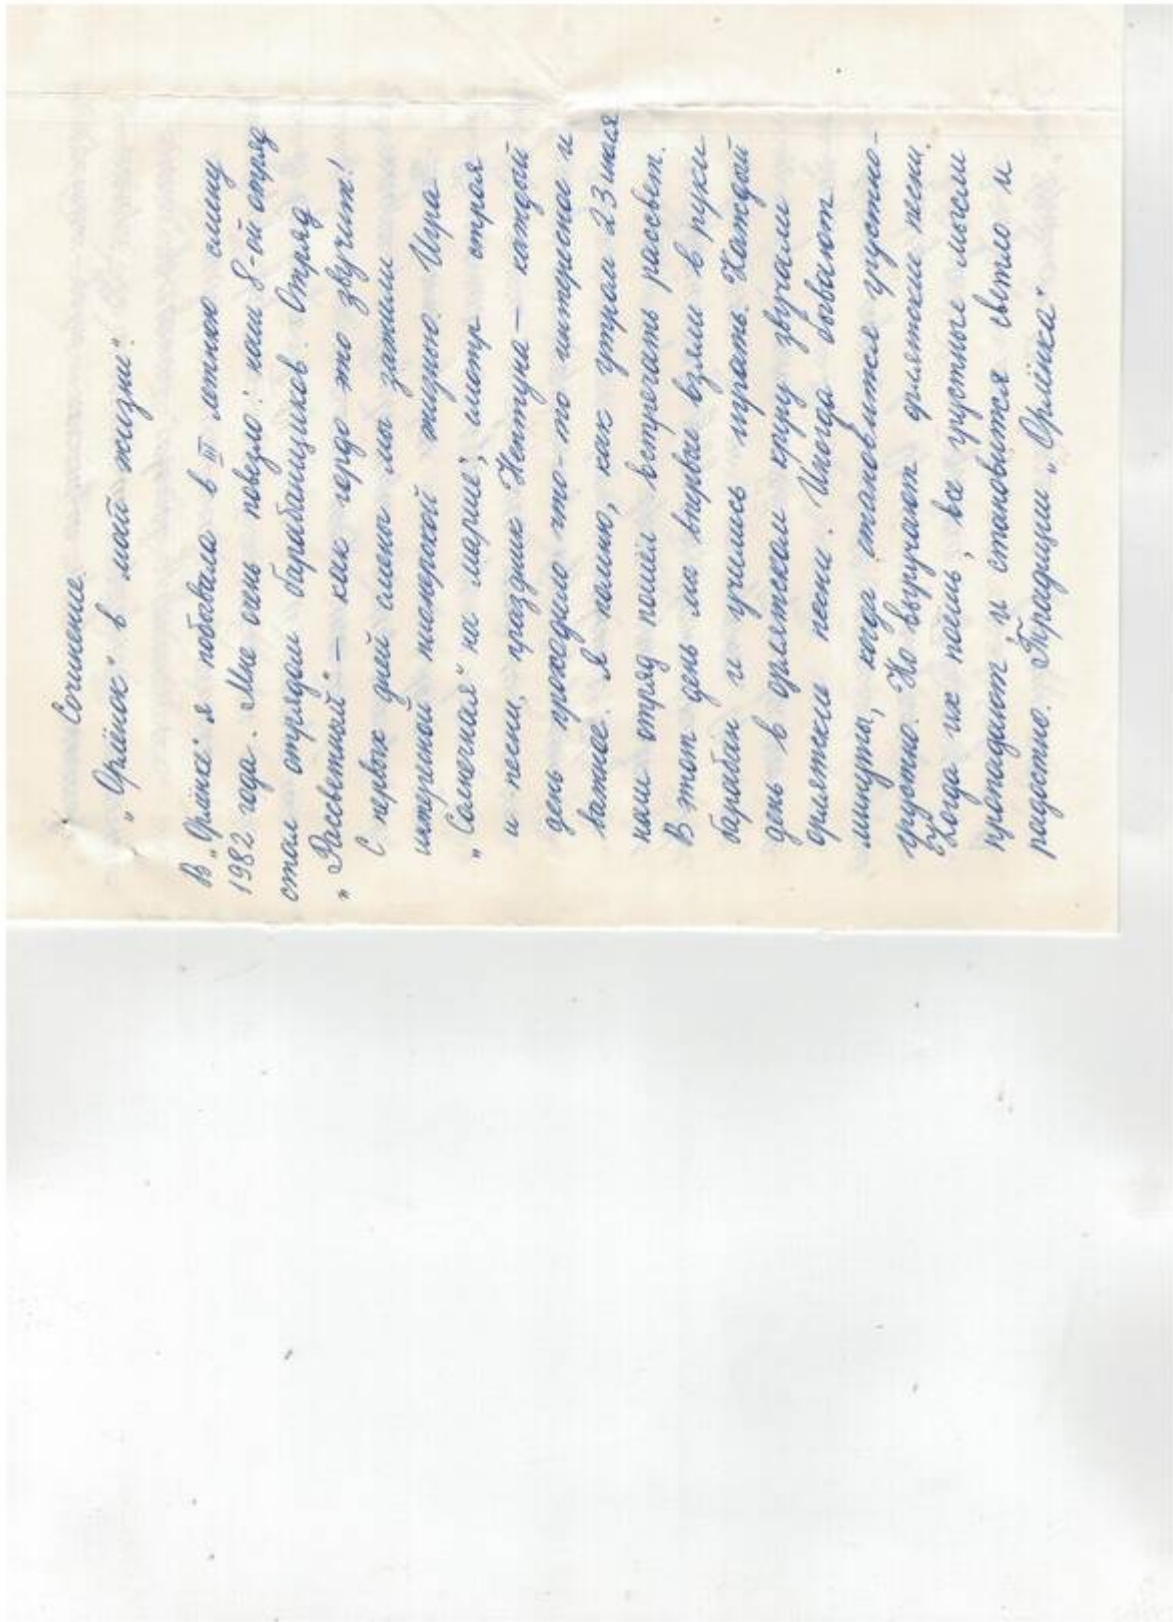 Сочинение
„Орлёнок" в моей жизни".
В „Орлёнке" я побывала в III летнюю смену
1982 года. Мне очень повезло: наш 8-ой отряд
стал отрядом барабанщиков. Отряд
„Рассветный" – как гордо это звучит!
С первых дней смены мы зажили
интересной пионерской жизнью. Игра
„Солнечная" на марше", смотр строя
и песни, праздник Нептуна – каждый
день проходило что-то интересное и
важное. Я помню, как утром 23 июля
наш отряд пошёл встречать рассвет.
В этот день мы впервые взяли в руки
барабан и учились играть. Каждый
день в орлятском кругу звучали
орлятские песни. Иногда бывают
минуты, когда становится грустно-
грустно. Но выручают орлятские песни.
Когда их поёшь, все грустные мысли
пропадают и становится светло и
радостно. Традиции „Орлёнка"